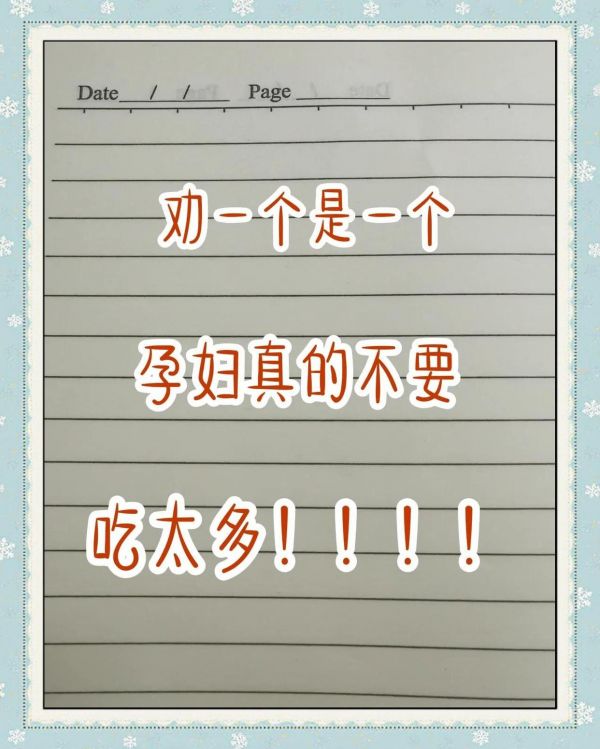 Date / / Page
劝一个是一个
孕妇真的不要
吃太多！！！！